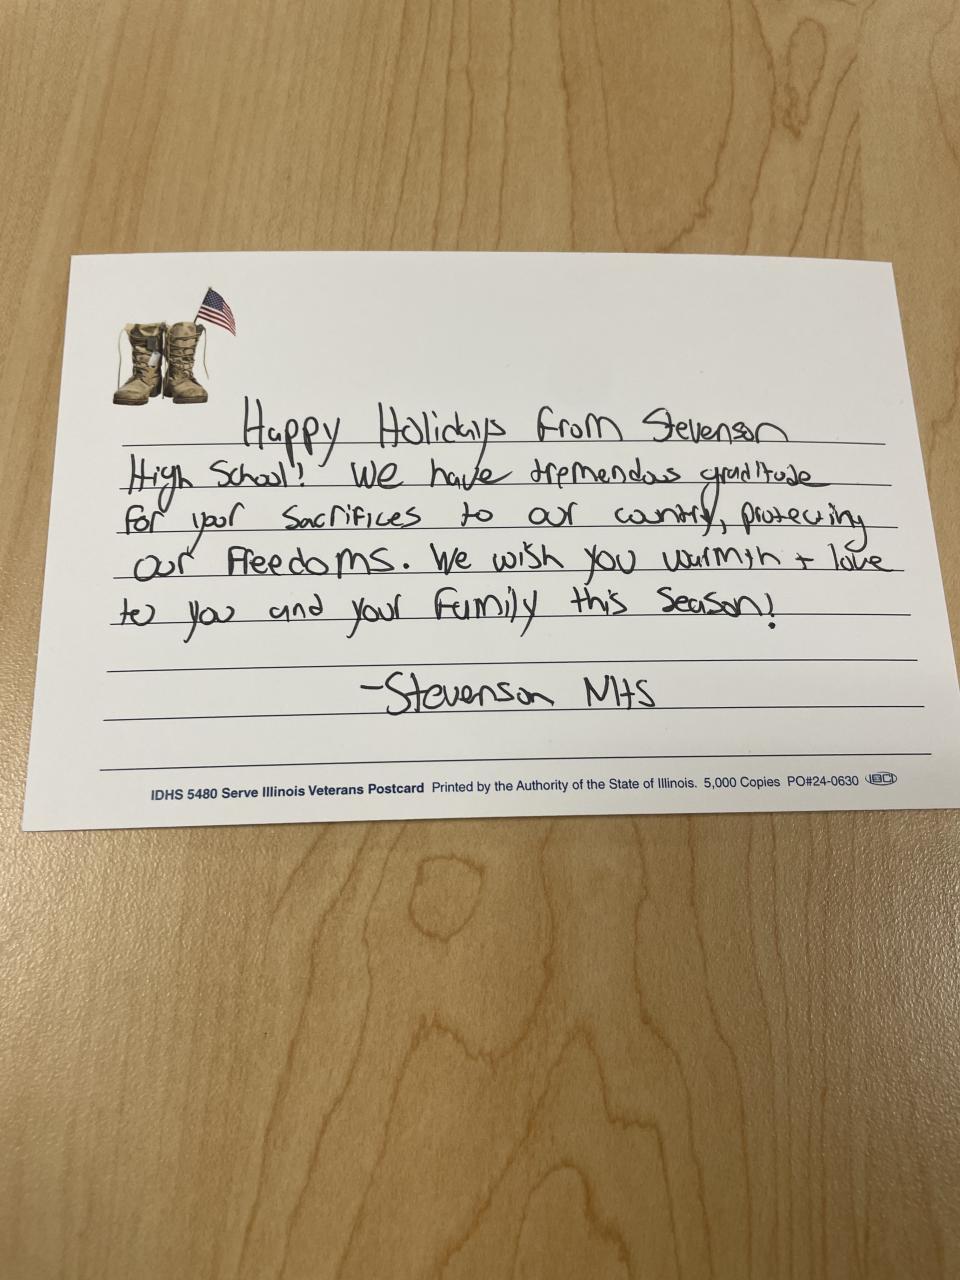 Happy Holidays from Stevenson
High School! We have tremendous graditude
for your sacrifices to our country, protecting
our freedoms. We wish you warmth + love
to you and your family this season!
-Stevenson NHS
IDHS 5480 Serve Illinois Veterans Postcard Printed by the Authority of the State of Illinois. 5,000 Copies PO#24-0630